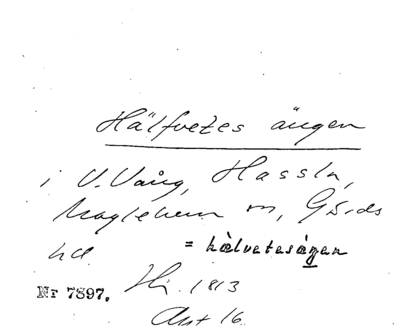 Hälfvetes ängen
i V. Vång, Hassla,
Maglehem sn, Gärds
hd = hälvetesägen
Nr 7897. Hi. 1813
Akt 16